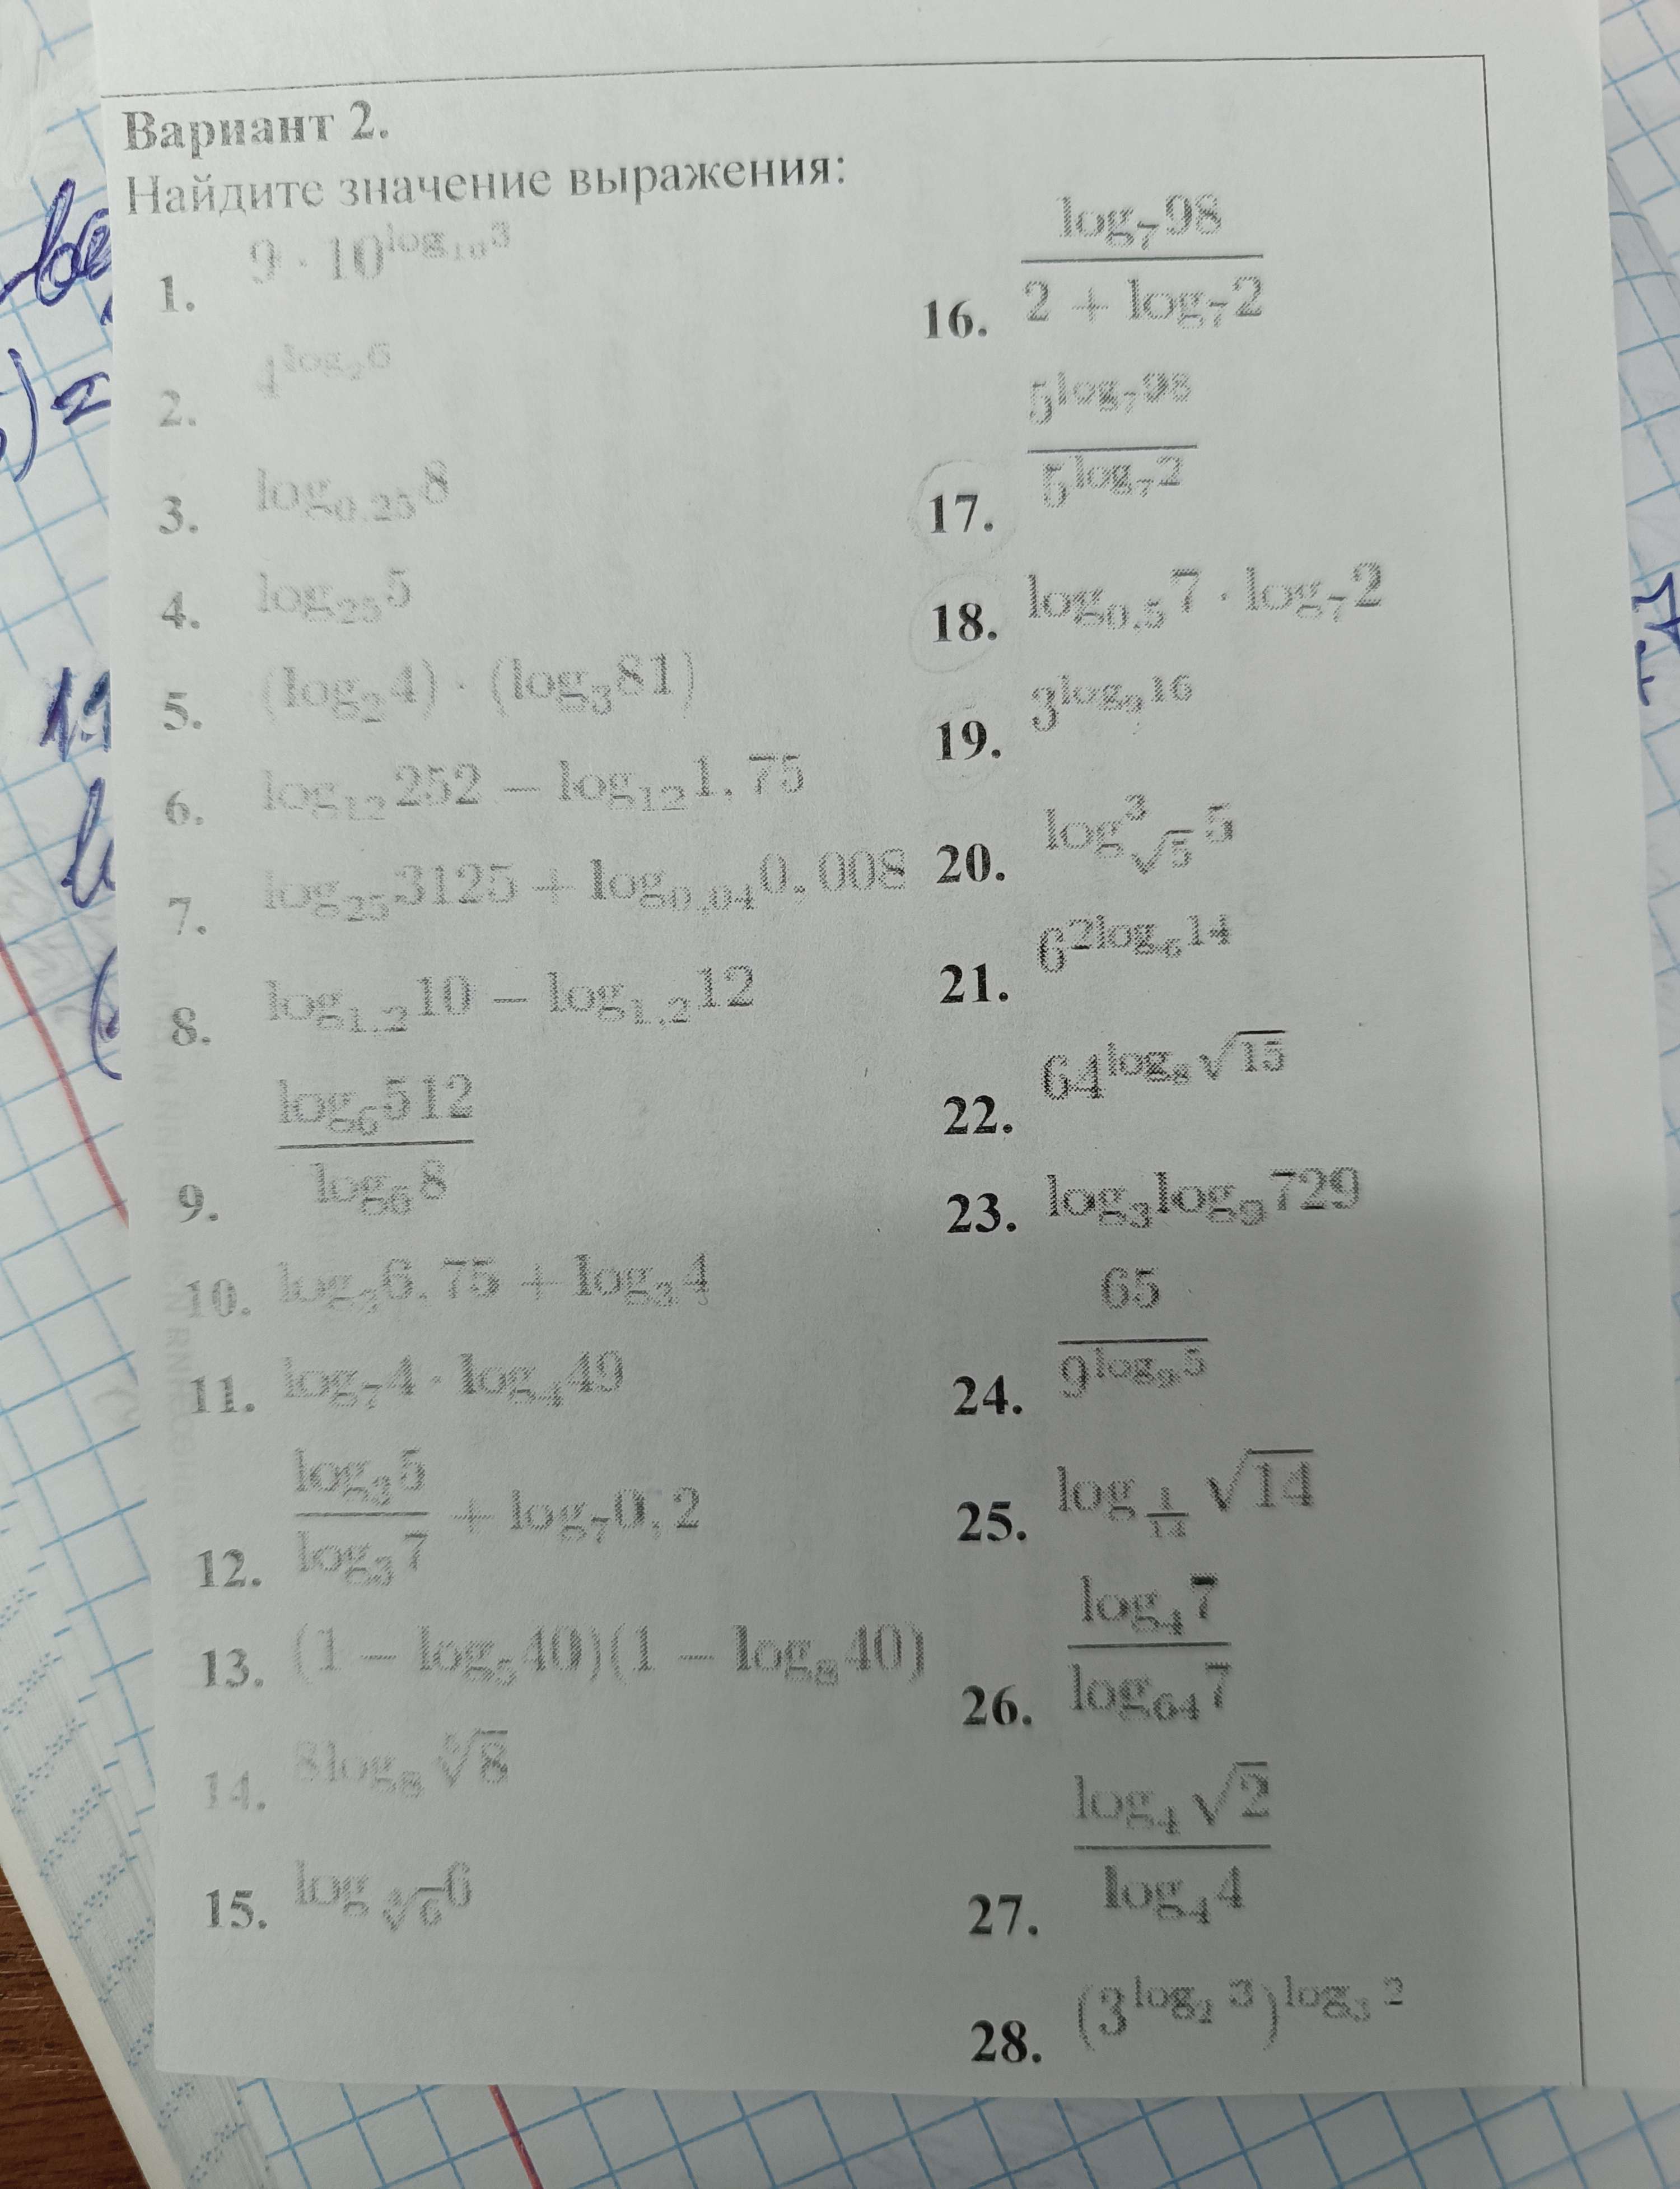 Вариант 2.
Найдите значение выражения:
1. 9 · 10^{log_{10}3}
2. 4^{log_2 6}
3. log_{0,25} 8
4. log_{25} 5
5. (log_2 4) · (log_3 81)
6. log_{12} 252 − log_{12} 1,75
7. log_{25} 3125 + log_{0,04} 0,008
8. log_{1,2} 10 − log_{1,2} 12
9. \frac{log_6 512}{log_6 8}
10. log_3 6,75 + log_3 4
11. log_7 4 · log_4 49
12. \frac{log_3 5}{log_3 7} + log_7 0,2
13. (1 − log_5 40)(1 − log_8 40)
14. 8log_8 \sqrt{8}
15. log_{\sqrt{6}} 6
16. \frac{log_7 98}{2 + log_7 2}
17. \frac{5^{log_7 98}}{5^{log_7 2}}
18. log_{0,5} 7 · log_7 2
19. 3^{log_9 16}
20. log^3_{\sqrt{5}} 5
21. 6^{2log_6 14}
22. 64^{log_8 \sqrt{15}}
23. log_3 log_9 729
24. \frac{65}{9^{log_9 5}}
25. log_{\frac{1}{14}} \sqrt{14}
26. \frac{log_4 7}{log_{64} 7}
27. \frac{log_4 \sqrt{2}}{log_4 4}
28. (3^{log_2 3})^{log_3 2}